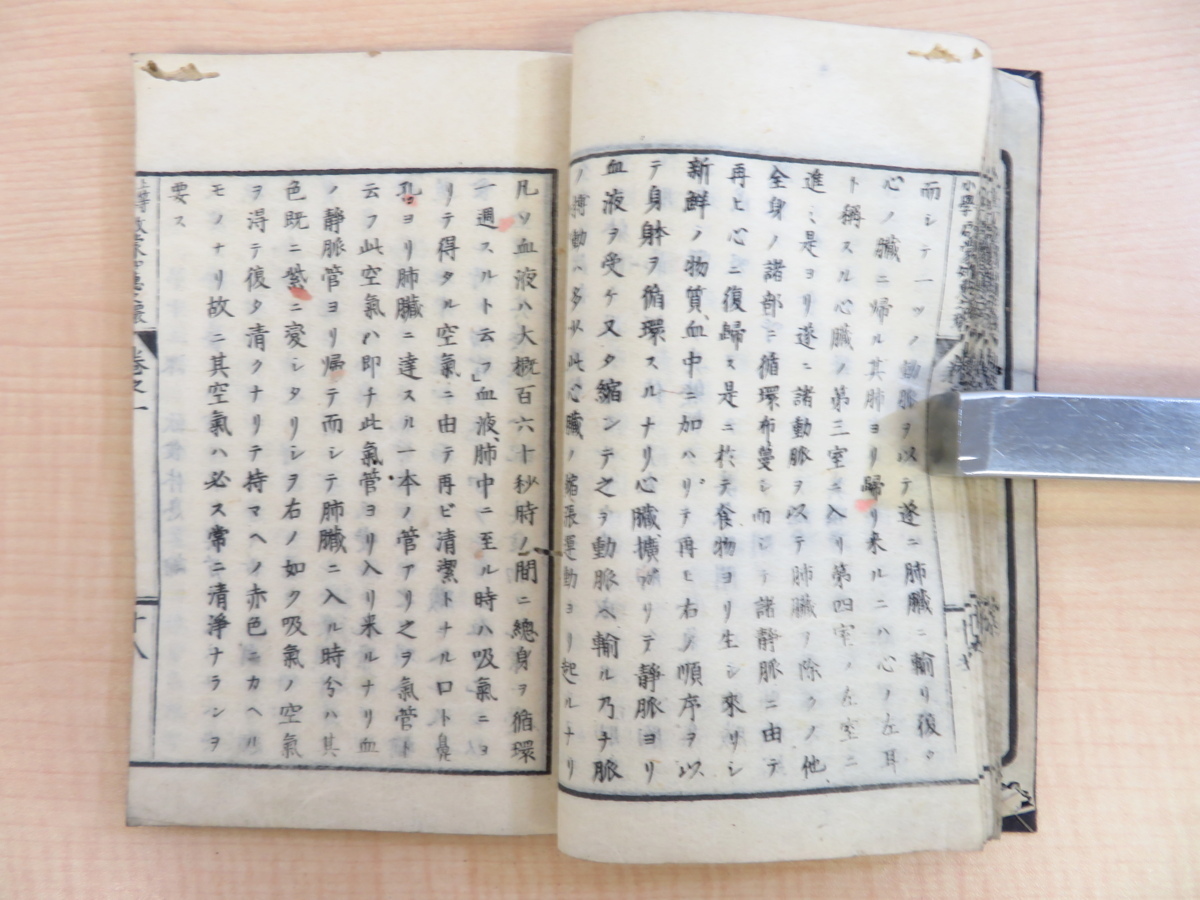 而シテ一ツノ動脈ヲ以テ遂ニ肺臓ニ輸リ復タ
心ノ臓ニ帰ル其肺ヨリ歸リ来ルニハ心ノ左耳
ト稱スル心臓ノ第三室ニ入リ第四室ノ左室ニ
進ミ是ヨリ遂ニ諸動脈ヲ以テ肺臓ヲ除クノ他
全身ノ諸部ニ循環布蔓シ而シテ諸静脈ニ由テ
再ヒ心ニ復歸ス是ニ於テ食物ヨリ生シ來リシ
新鮮ノ物質血中ニ加ハリテ再ヒ右ノ順序ヲ以
テ身躰ヲ循環スルナリ心臓擴ガリテ静脈ヨリ
血液ヲ受ケ又タ縮ンテ之ヲ動脈ヘ輸ル乃チ脈
ノ搏動ハ多ク此心臓ノ縮張運動ヨリ起ルナリ
凡ソ血液ハ大概百六十秒時ノ間ニ總身ヲ循環
一週スルト云フ血液肺中ニ至ル時ハ吸氣ニヨ
リテ得タル空氣ニ由テ再ビ清潔トナル口ト鼻
孔ヨリ肺臓ニ達スル一本ノ管アリ之ヲ氣管ト
云フ此空氣ハ即チ此氣管ヨリ入リ来ルナリ血
ノ静脈管ヨリ帰テ而シテ肺臓ニ入ル時分ハ其
色既ニ紫ニ変シタリシヲ右ノ如ク吸氣ノ空氣
ヲ得テ復タ清クナリテ持マヘノ赤色ニカヘル
モノナリ故ニ其空氣ハ必ス常ニ清浄ナランヲ
要ス
卷之一
十八